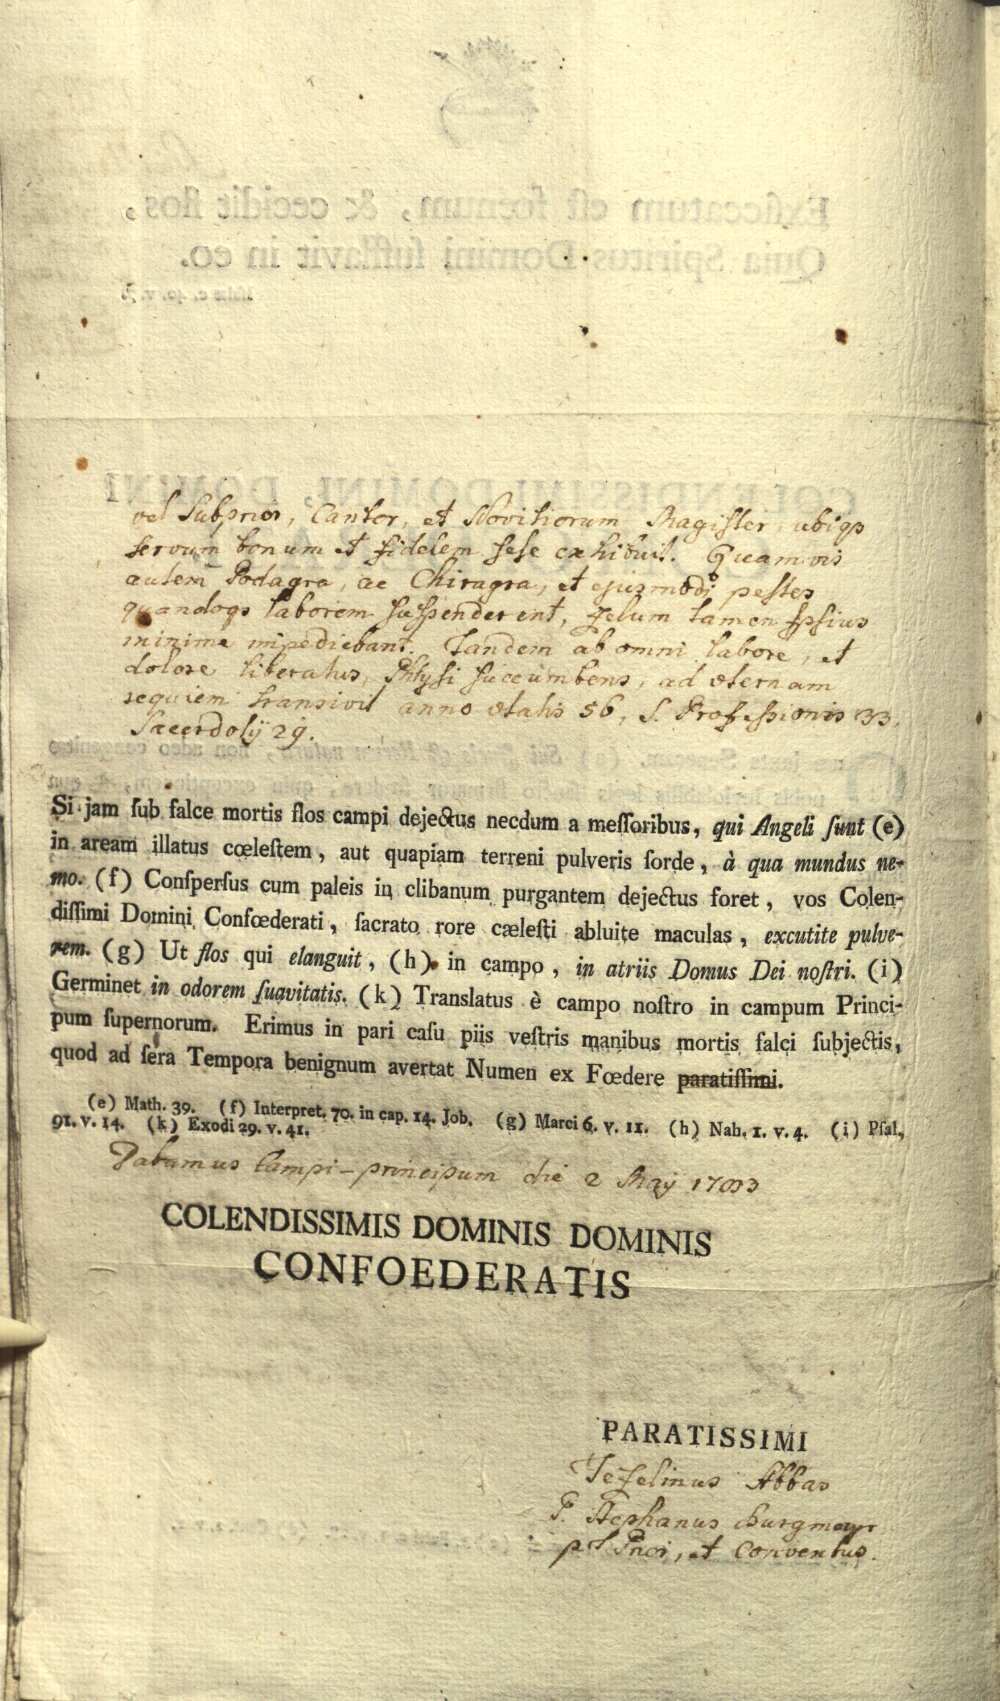 vel Subprior, Cantor, et Novitiorum Magister, ubiqs
servum bonum et fidelem sese exhibuit. Quamvis
autem Podagra, ac Chiragra, et ejusmodi pestes
quandoqs laborem suspenderent, zelum tamen Ipsius
minime impediebant. Tandem ab omni labore, et
dolore liberatus, Phtysi succumbens, ad æternam
requiem transivit anno ætatis 56, S. Professionis 33.
Sacerdotij 29.
Si jam ſub falce mortis flos campi dejectus necdum a meſſoribus, qui Angeli ſunt (e)
in aream illatus cœleſtem, aut quapiam terreni pulveris ſorde, à qua mundus ne-
mo. (f) Conſperſus cum paleis in clibanum purgantem dejectus foret, vos Colen-
diſſimi Domini Confœderati, ſacrato rore cæleſti abluite maculas, excutite pulve-
rem. (g) Ut flos qui elanguit, (h) in campo, in atriis Domus Dei noſtri. (i)
Germinet in odorem ſuavitatis. (k) Translatus è campo noſtro in campum Princi-
pum ſupernorum. Erimus in pari caſu piis veſtris manibus mortis falci ſubjectis,
quod ad ſera Tempora benignum avertat Numen ex Fœdere paratiſſimi.
(e) Math. 39. (f) Interpret. 70. in cap. 14. Job. (g) Marci 6. v. 11. (h) Nah. 1. v. 4. (i) Pſal.
91. v. 14. (k) Exodi 29. v. 41.
Dabamus Campi-principum die 2 Maÿ
COLENDISSIMIS DOMINIS DOMINIS
CONFOEDERATIS
PARATISSIMI
Tezelinus Abbas
P. Stephanus Burgmayr
pt Prior, et Conventus.